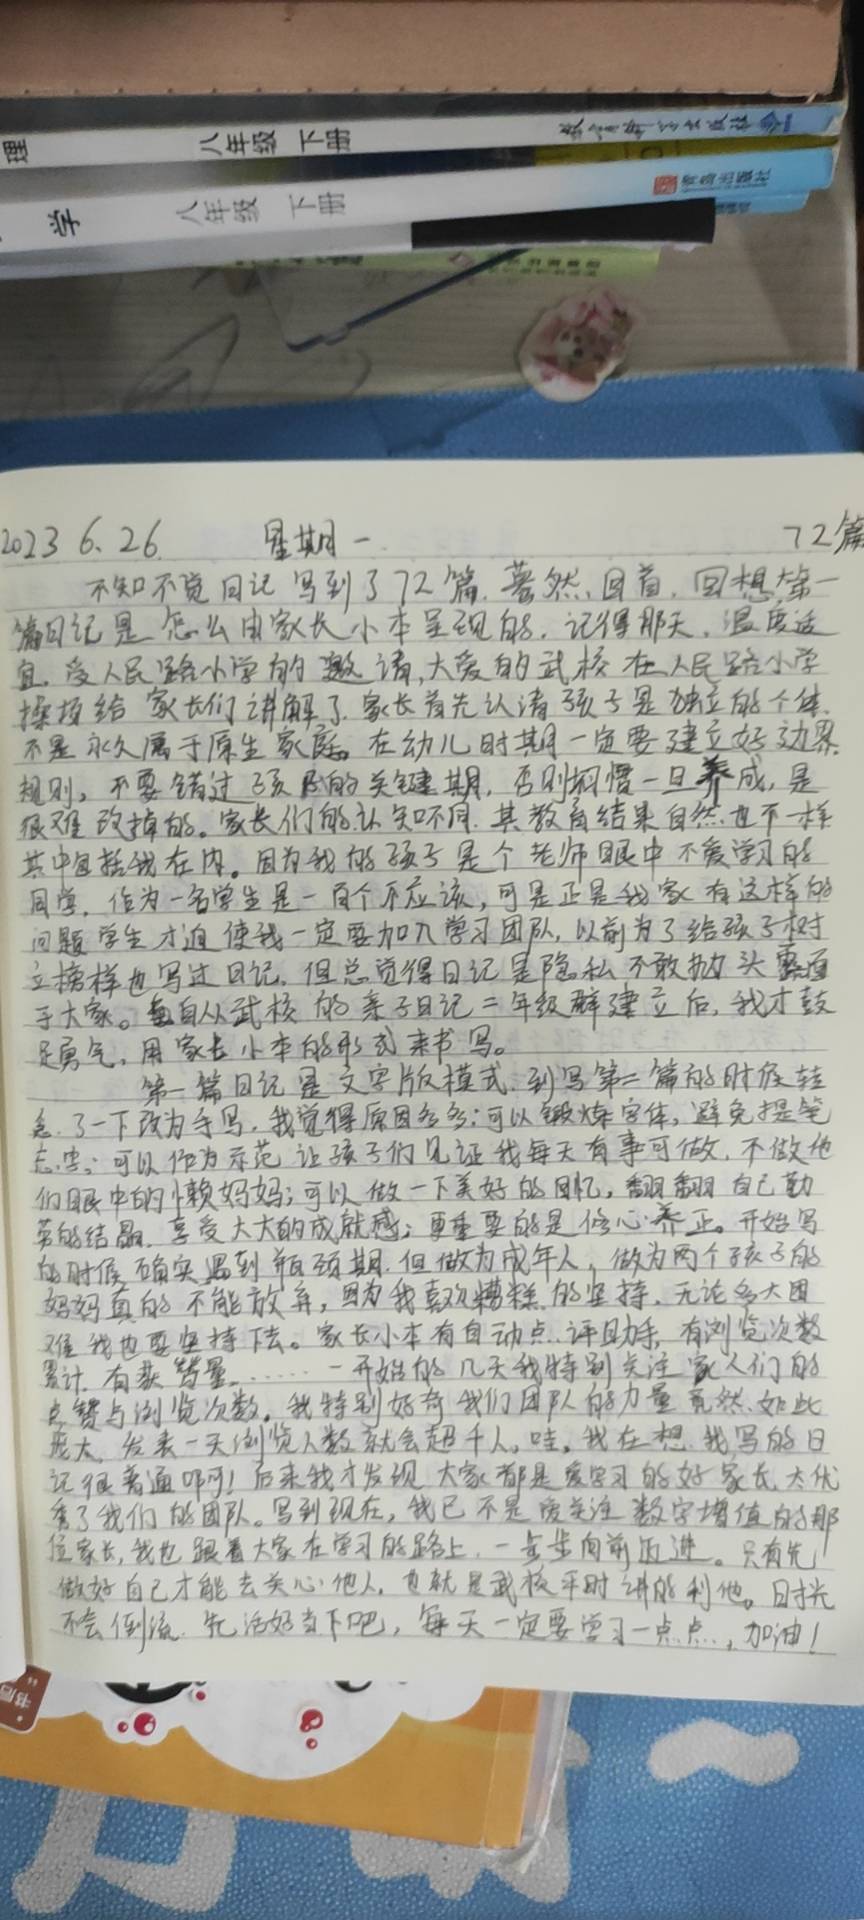 理 八年级 下册 教育科学出版社
学 八年级 下册 青岛出版社
2023 6.26 星期一 72篇
不知不觉日记写到了72篇，蓦然回首，回想第一
篇日记是怎么由家长小本呈现的，记得那天，温度适
宜，受人民路小学的邀请，大爱的武校在人民路小学
操场给家长们讲解了家长首先认清孩子是独立的个体，
不是永久属于原生家庭。在幼儿时期一定要建立好边界
规则，不要错过孩子的关键期，否则习惯一旦养成，是
很难改掉的。家长们的认知不同，其教育结果自然也不一样
其中包括我在内。因为我的孩子是个老师眼中不爱学习的
同学，作为一名学生是一百个不应该，可是正是我家有这样的
问题学生才迫使我一定要加入学习团队，以前为了给孩子树
立榜样也写过日记，但总觉得日记是隐私不敢抛头露面
于大家。自从武校的亲子日记二年级群建立后，我才鼓
足勇气，用家长小本的形式来书写。
第一篇日记是文字版模式，到写第二篇的时候转
念了一下改为手写，我觉得原因多多：可以锻炼字体，避免提笔
忘字；可以作为示范让孩子们见证我每天有事可做，不做他
们眼中的懒妈妈；可以做一下美好的回忆，翻翻自己勤
劳的结晶，享受大大的成就感；更重要的是修心养正。开始写
的时候确实遇到瓶颈期，但做为成年人，做为两个孩子的
妈妈真的不能放弃，因为我喜欢糟糕的坚持，无论多大困
难我也要坚持下去。家长小本有自动点评助手，有浏览次数
累计，有获赞量……一开始的几天我特别关注家人们的
点赞与浏览次数。我特别好奇我们团队的力量竟然如此
庞大，发表一天浏览人数就会超千人，哇，我在想，我写的日
记很普通啊！后来我才发现大家都是爱学习的好家长太优
秀了我们的团队。写到现在，我已不是很关注数字增值的那
位家长，我也跟着大家在学习的路上，一步步向前迈进。只有先
做好自己才能去关心他人，也就是武校平时讲的利他。时光
不会倒流，先活好当下吧，每天一定要学习一点点，加油！